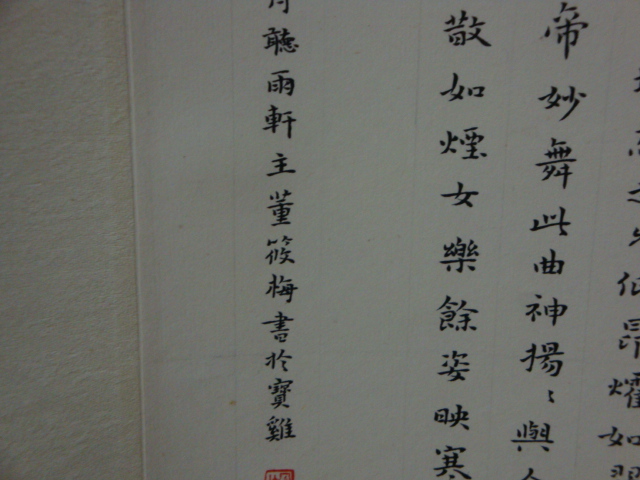 之久低昂燿如
帝妙舞此曲神揚〻與
散如煙女樂餘姿映寒
聽雨軒主董筱梅書於寶雞